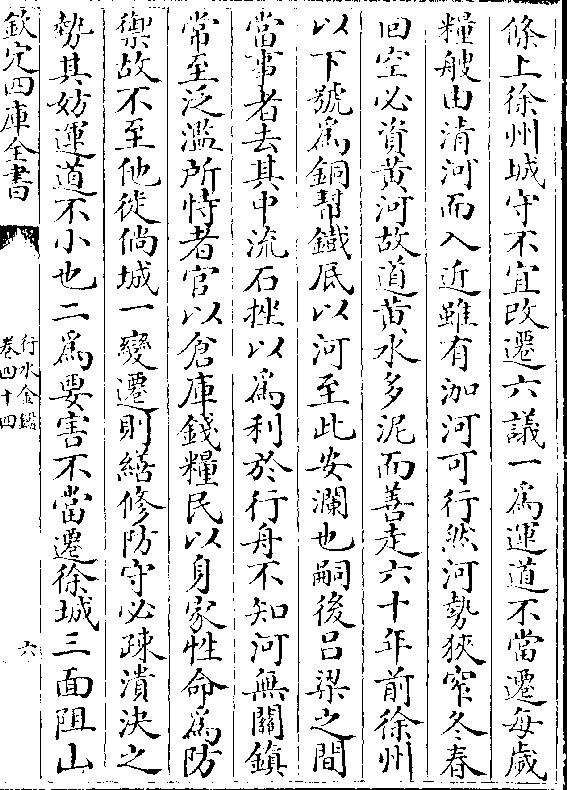 條上徐州城守不宜改遷六議一為運道不當遷每歲
糧艘由清河而入近雖有泇河可行然河勢狹窄冬春
回空必資黄河故道黄水多泥而善走六十年前徐州
以下號為銅幫鐵底以河至此安瀾也嗣後吕梁之間
當事者去其中流石挫以為利於行舟不知河無關鎮
常至泛濫所恃者官以倉庫錢糧民以身家性命為防
禦故不至他徙倘城一變遷則繕修防守必疎潰決之
勢其妨運道不小也二為要害不當遷徐城三面阻山
欽定四庫全書
行水金鑑
卷四十四
六